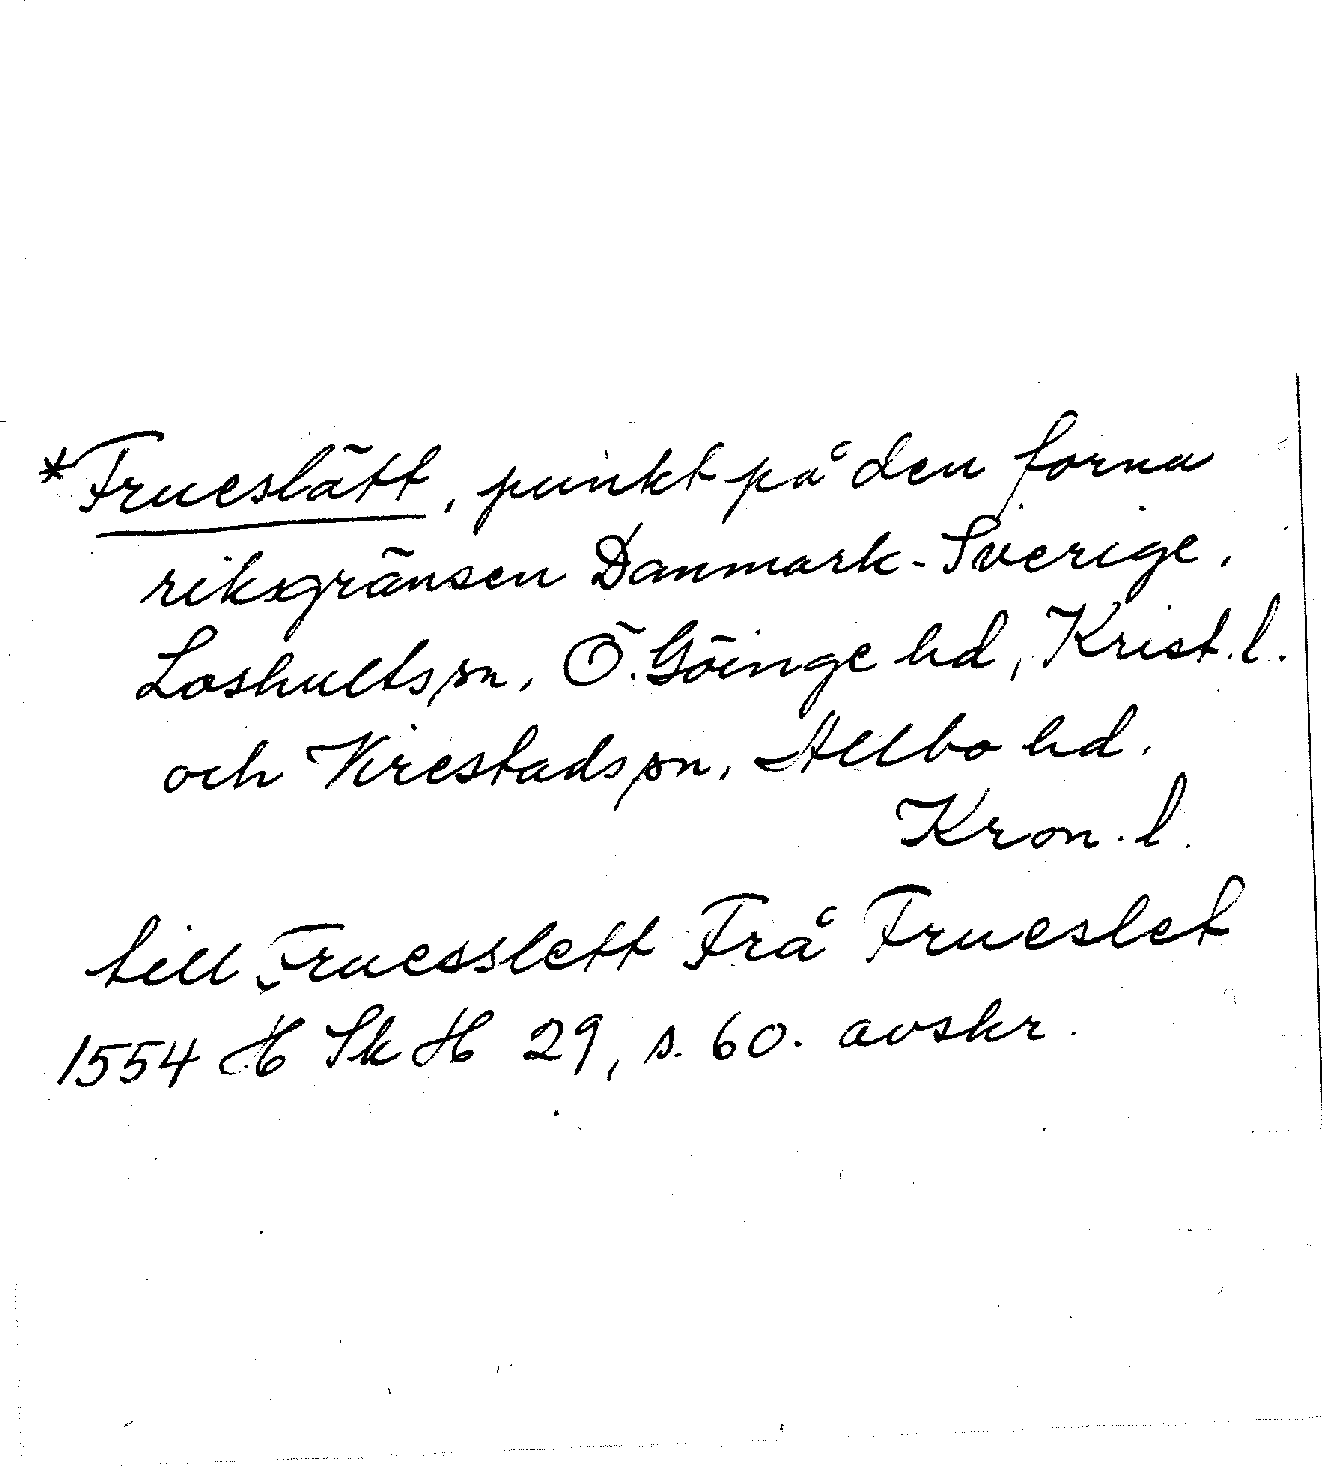 *Frueslätt, punkt på den forna
riksgränsen Danmark-Sverige,
Loshults sn, Ö. Göinge hd, Krist. l.
och Virestads sn, Allbo hd.
Kron. l.
till Fruesslett Frå Frueslet
1554 H Sk H 29, s. 60. avskr.